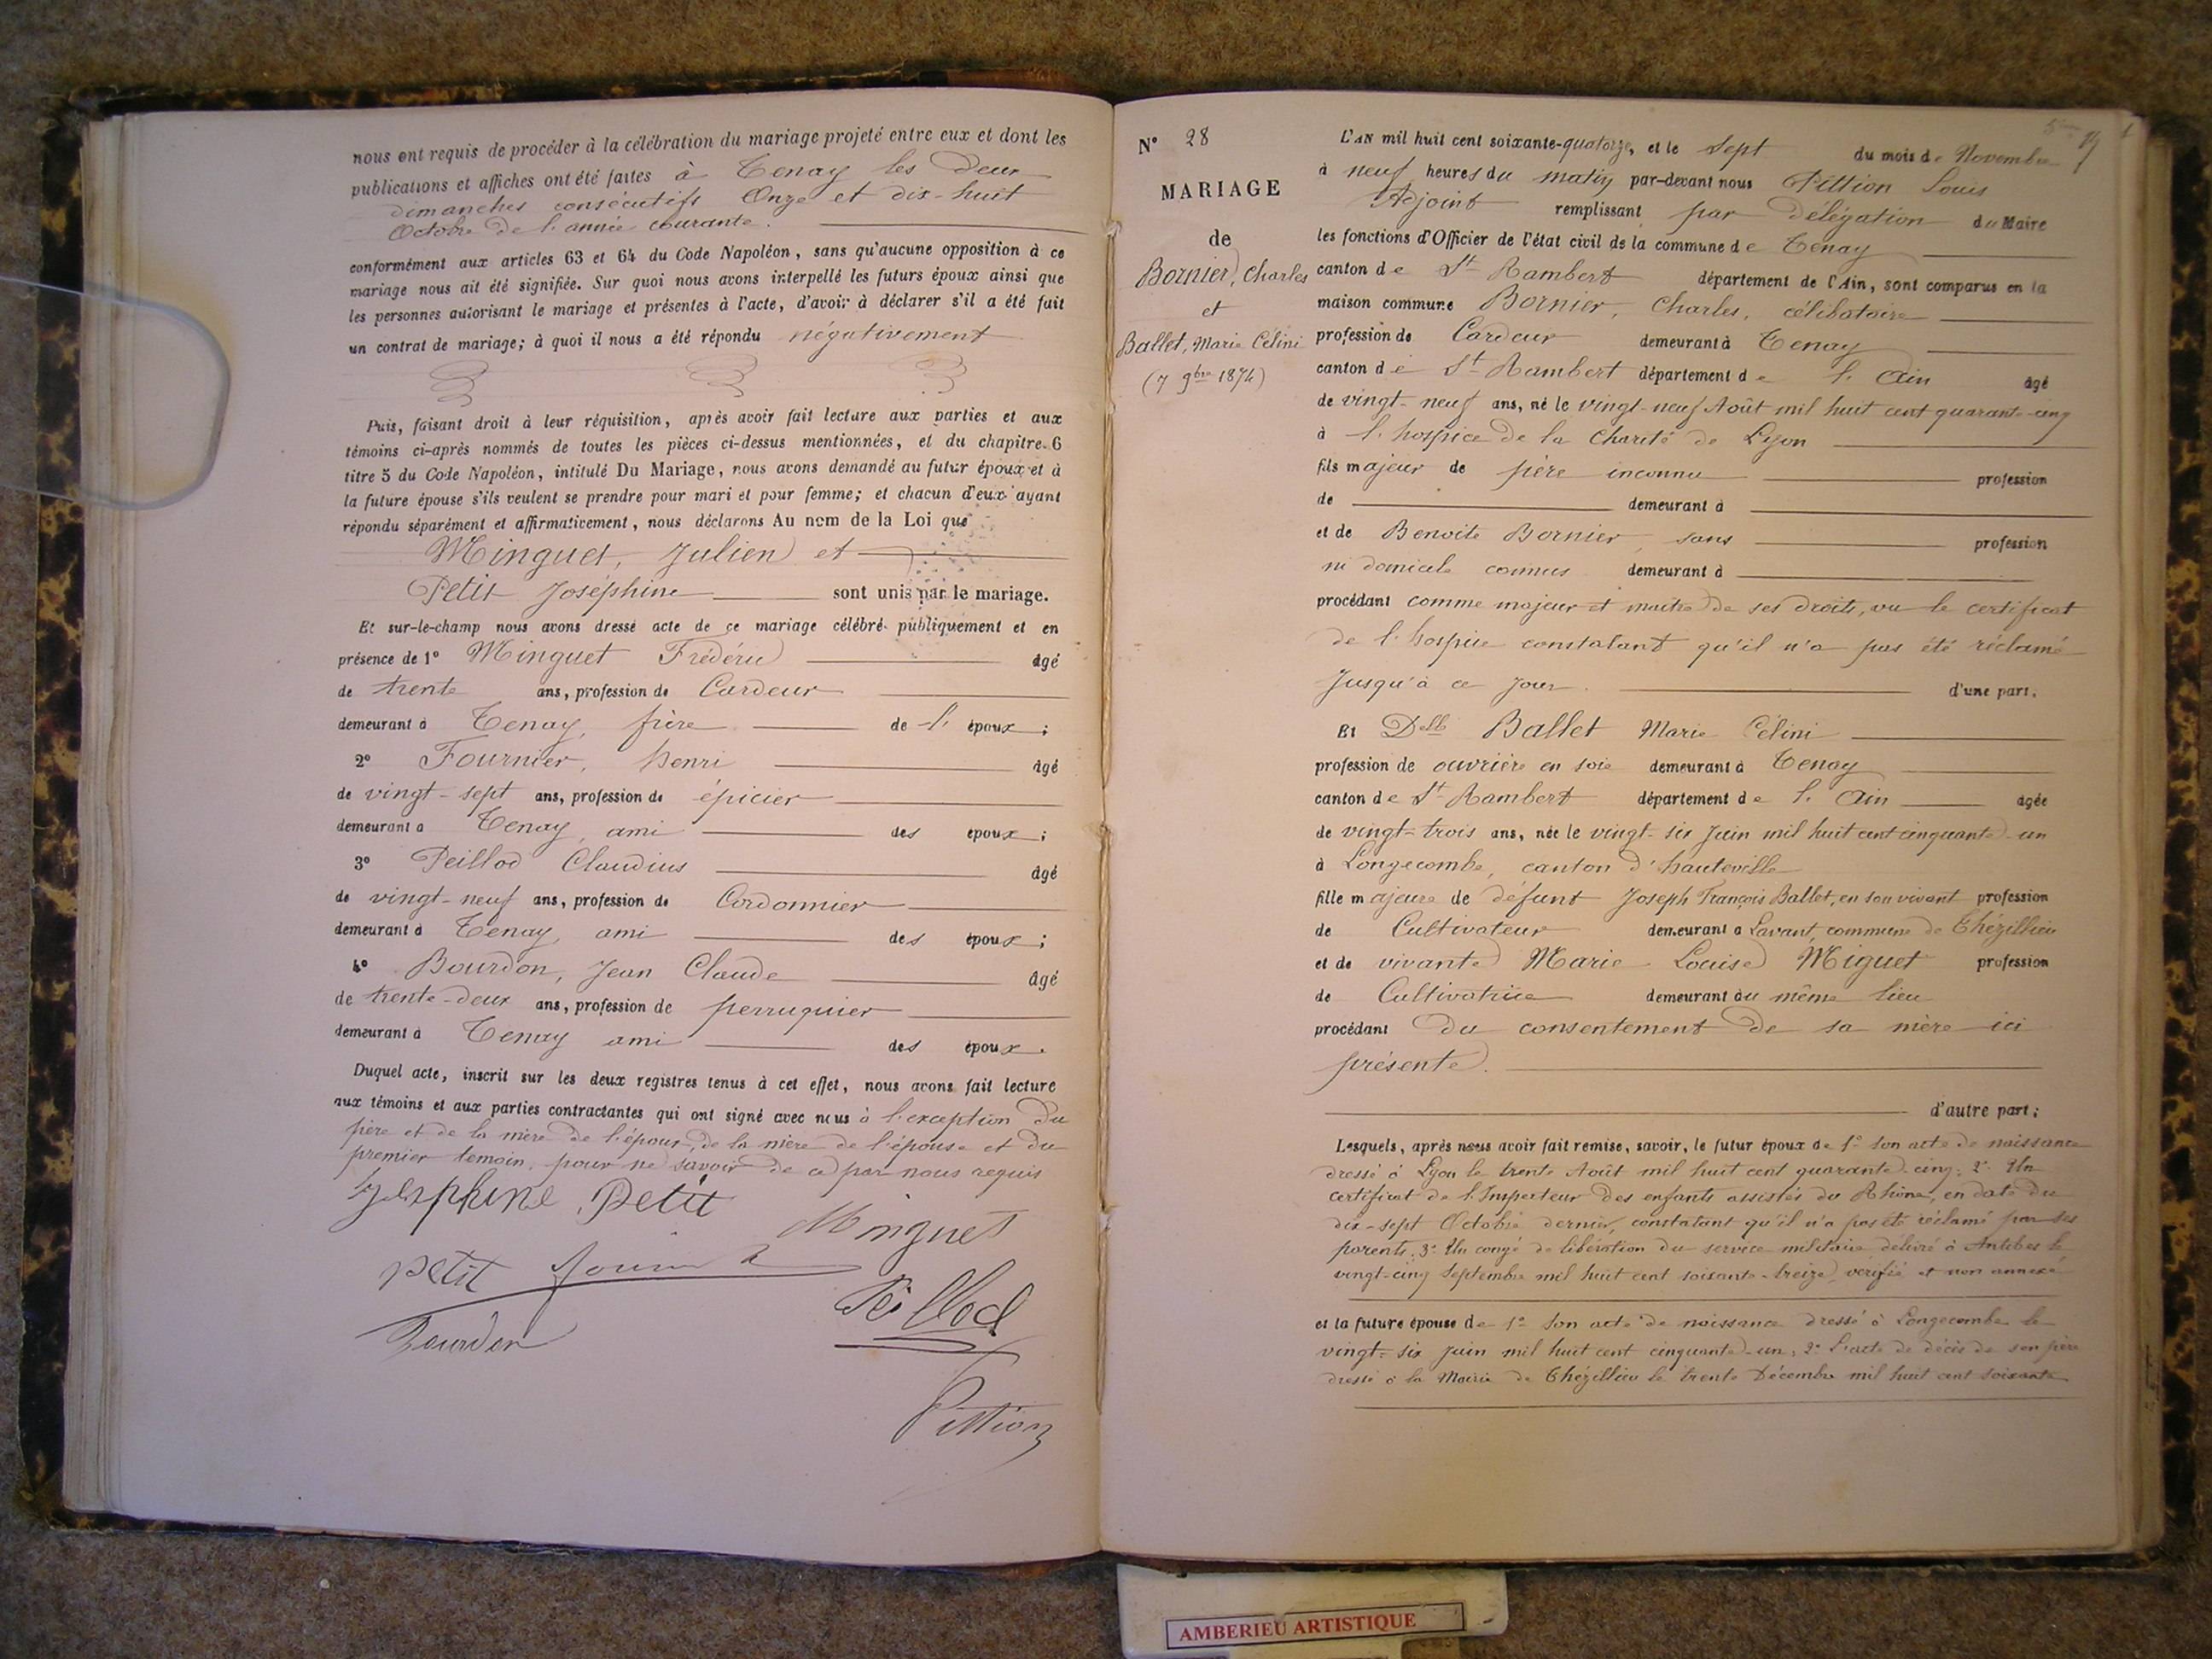 nous ont requis de procéder à la célébration du mariage projeté entre eux et dont les
publications et affiches ont été faites à Tenay les deux
dimanches consécutifs Onze et dix-huit
Octobre de l'année courante.
conformément aux articles 63 et 64 du Code Napoléon, sans qu'aucune opposition à ce
mariage nous ait été signifiée. Sur quoi nous avons interpellé les futurs époux ainsi que
les personnes autorisant le mariage et présentes à l'acte, d'avoir à déclarer s'il a été fait
un contrat de mariage; à quoi il nous a été répondu négativement
Puis, faisant droit à leur réquisition, après avoir fait lecture aux parties et aux
témoins ci-après nommés de toutes les pièces ci-dessus mentionnées, et du chapitre 6
titre 5 du Code Napoléon, intitulé Du Mariage, nous avons demandé au futur époux et à
la future épouse s'ils veulent se prendre pour mari et pour femme; et chacun d'eux ayant
répondu séparément et affirmativement, nous déclarons Au nom de la Loi que
Minguet, Julien et
Petit Joséphine sont unis par le mariage.
Et sur-le-champ nous avons dressé acte de ce mariage célébré publiquement et en
présence de 1° Minguet Frédéric âgé
de trente ans, profession de Cardeur
demeurant à Tenay, frère de l' époux;
2° Fournier, henri âgé
de vingt-sept ans, profession de épicier
demeurant à Tenay, ami des époux;
3° Peillod Claudius âgé
de vingt-neuf ans, profession de Cordonnier
demeurant à Tenay, ami des époux;
4° Bourdon, Jean Claude âgé
de trente-deux ans, profession de perruquier
demeurant à Tenay ami des époux.
Duquel acte, inscrit sur les deux registres tenus à cet effet, nous avons fait lecture
aux témoins et aux parties contractantes qui ont signé avec nous à l'exception du
père et de la mère de l'époux, de la mère de l'épouse et du
premier temoin, pour ne savoir de ce par nous requis
Josephine Petit
Minguet
petit
Peillod
Bourdon
Pittion
N° 28
MARIAGE
de
Bornier, Charles
et
Ballet, Marie Célini
(7 9bre 1874)
L'AN mil huit cent soixante-quatorze, et le Sept du mois de Novembre
à neuf heures du matin par-devant nous Pittion Louis
Adjoint remplissant par délégation du Maire
les fonctions d'Officier de l'état civil de la commune de Tenay
canton de St Rambert département de l'Ain, sont comparus en la
maison commune Bornier, Charles, célibataire
profession de Cardeur demeurant à Tenay
canton de St Rambert département de l'Ain âgé
de vingt-neuf ans, né le vingt-neuf Août mil huit cent quarante-cinq
à l'hospice de la Charité de Lyon
fils majeur de père inconnu profession
de demeurant à
et de Benoite Bornier, sans profession
ni domicile connus demeurant à
procédant comme majeur et maître de ses droits, vu le certificat
de l'hospice constatant qu'il n'a pas été réclamé
Jusqu'à ce jour. d'une part.
Et Delle Ballet Marie Célini
profession de ouvrière en soie demeurant à Tenay
canton de St Rambert département de l'Ain âgée
de vingt-trois ans, née le vingt-six Juin mil huit cent cinquante-un
à Longecombe, canton d'hauteville
fille majeure de défunt Joseph François Ballet, en son vivant profession
de Cultivateur demeurant à Lavant, commune de Thézillieu
et de vivante Marie Louise Miguet profession
de Cultivatrice demeurant au même lieu
procédant du consentement de sa mère ici
présente.
d'autre part;
Lesquels, après nous avoir fait remise, savoir, le futur époux de 1° Son acte de naissance
dressé à Lyon le trente Août mil huit cent quarante-cinq; 2° Un
certificat de l'Inspecteur des enfants assistés du Rhône, en date du
dix-sept Octobre dernier, constatant qu'il n'a pas été réclamé par ses
parents. 3° Un congé de libération du service militaire délivré à Antibes le
vingt-cinq Septembre mil huit cent soixante-treize, verifié et non annexé
et la future épouse de 1° Son acte de naissance dressé à Longecombe le
vingt-six Juin mil huit cent cinquante-un, 2° L'acte de décès de son père
dressé à la Mairie de Thézillieu le trente Décembre mil huit cent soixante
AMBERIEU ARTISTIQUE